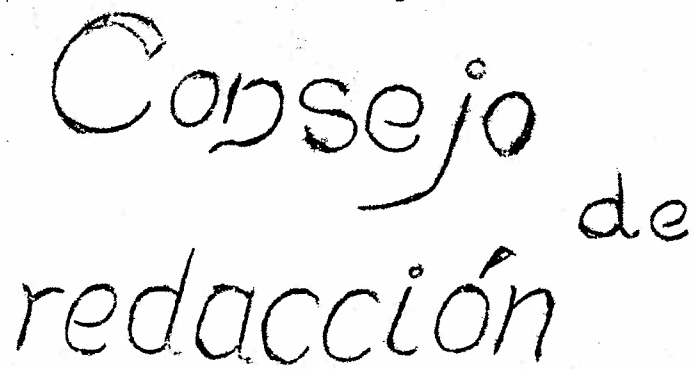 Consejo
de
redacción